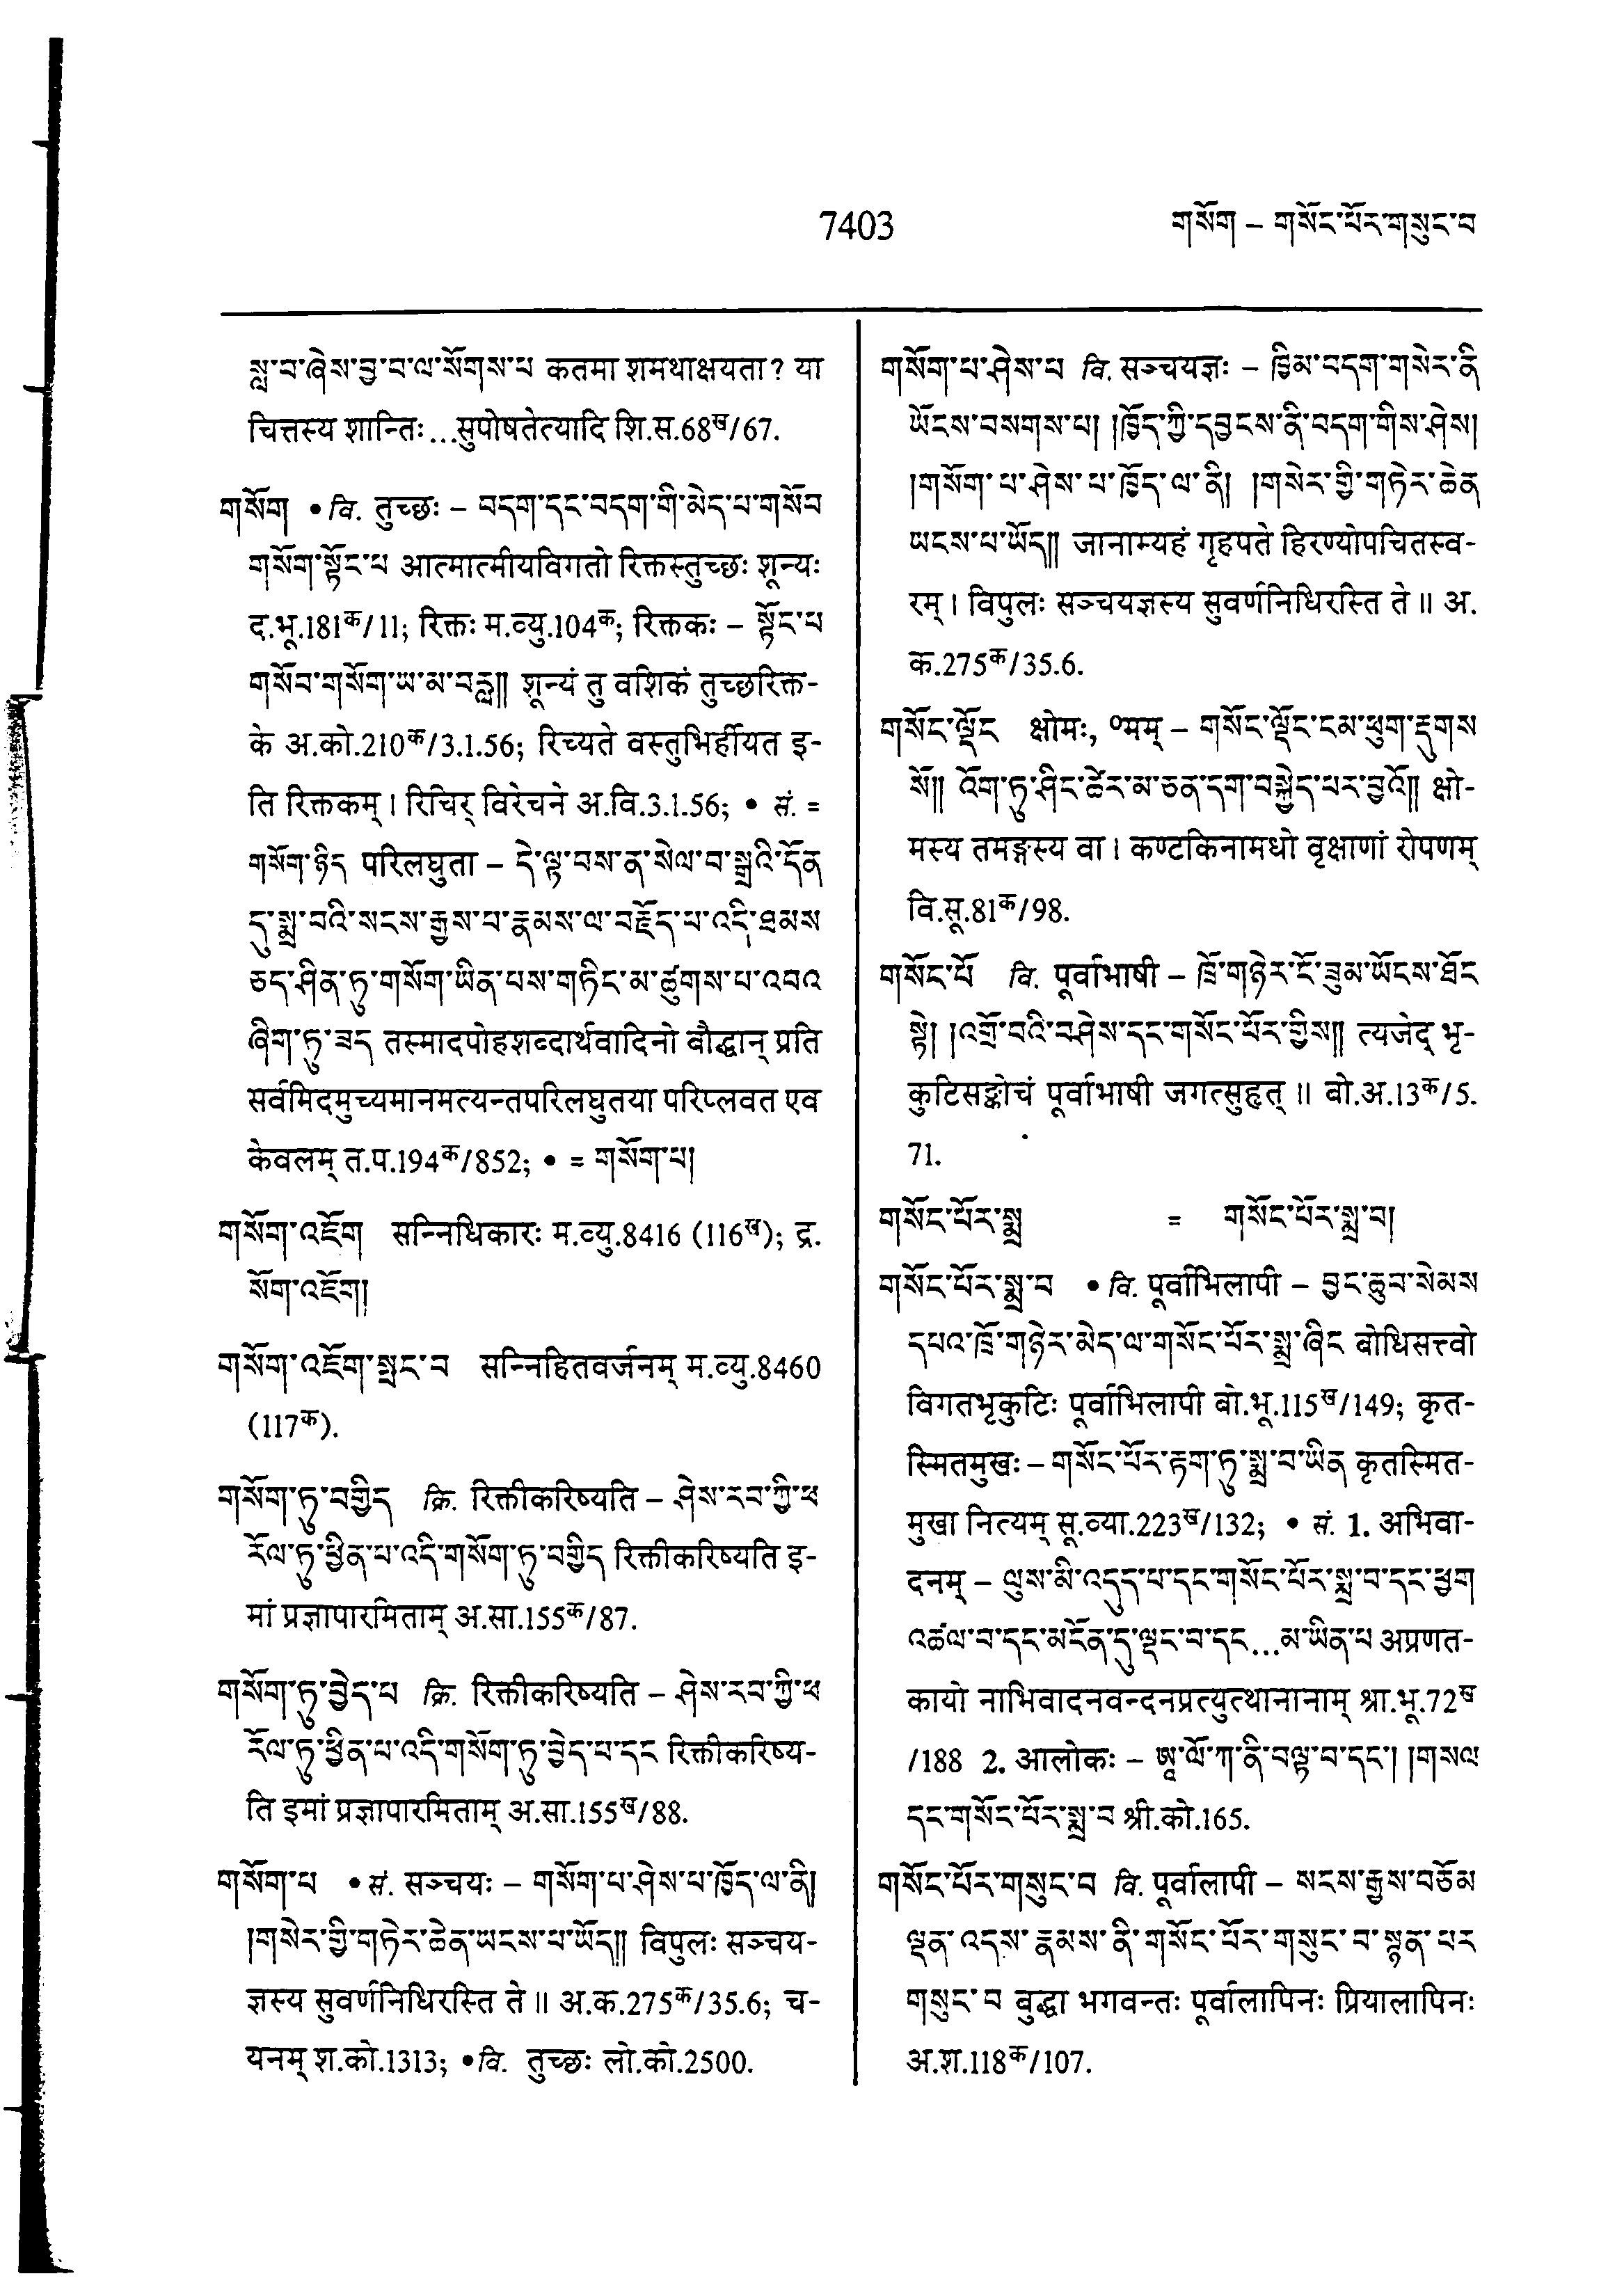 7403
གསོག – གསོང་པོར་གསུང་བ
སླ་བ་ཞེས་བྱ་བ་ལ་སོགས་པ कतमा शमथाक्षयता? या
चित्तस्य शान्तिः...सुपोषतेत्यादि शि.स.68ख/67.
གསོག • वि. तुच्छः – བདག་དང་བདག་གི་མེད་པ་གསོབ
གསོག་སྟོང་པ आत्मात्मीयविगतो रिक्तस्तुच्छः शून्यः
द.भू.181क/11; रिक्तः म.व्यु.104क; रिक्तकः – སྟོང་པ
གསོབ་གསོག་ཡ་མ་བརླ།། शून्यं तु वशिकं तुच्छरिक्त-
के अ.को.210क/3.1.56; रिच्यते वस्तुभिर्हीयत इ-
ति रिक्तकम् । रिचिर् विरेचने अ.वि.3.1.56; • सं. =
གསོག་ཉིད परिलघुता – དེ་ལྟ་བས་ན་སེལ་བ་སྒྲའི་དོན
དུ་སྨྲ་བའི་སངས་རྒྱས་པ་རྣམས་ལ་བརྗོད་པ་འདི་ཐམས
ཅད་ཤིན་ཏུ་གསོག་ཡིན་པས་གཏིང་མ་ཚུགས་པ་འབའ
ཞིག་ཏུ་ཟད तस्मादपोहशब्दार्थवादिनो बौद्धान् प्रति
सर्वमिदमुच्यमानमत्यन्तपरिलघुतया परिप्लवत एव
केवलम् त.प.194क/852; • = གསོག་པ།
གསོག་འཇོག सन्निधिकारः म.व्यु.8416 (116ख); द्र.
སོག་འཇོག།
གསོག་འཇོག་སྤང་བ सन्निहितवर्जनम् म.व्यु.8460
(117क).
གསོག་ཏུ་བགྱིད क्रि. रिक्तीकरिष्यति – ཤེས་རབ་ཀྱི་ཕ
རོལ་ཏུ་ཕྱིན་པ་འདི་གསོག་ཏུ་བགྱིད रिक्तीकरिष्यति इ-
मां प्रज्ञापारमिताम् अ.सा.155क/87.
གསོག་ཏུ་བྱེད་པ क्रि. रिक्तीकरिष्यति – ཤེས་རབ་ཀྱི་ཕ
རོལ་ཏུ་ཕྱིན་པ་འདི་གསོག་ཏུ་བྱེད་པ་དང रिक्तीकरिष्य-
ति इमां प्रज्ञापारमिताम् अ.सा.155ख/88.
གསོག་པ • सं. सञ्चयः – གསོག་པ་ཤེས་པ་ཁྱོད་ལ་ནི།
།གསེར་གྱི་གཏེར་ཆེན་ཡངས་པ་ཡོད།། विपुलः सञ्चय-
ज्ञस्य सुवर्णनिधिरस्ति ते ॥ अ.क.275क/35.6; च-
यनम् श.को.1313; • वि. तुच्छः लो.को.2500.
གསོག་པ་ཤེས་པ वि. सञ्चयज्ञः – ཁྱིམ་བདག་གསེར་ནི
ཡོངས་བསགས་པ། །ཁྱོད་ཀྱི་དབྱངས་ནི་བདག་གིས་ཤེས།
།གསོག་པ་ཤེས་པ་ཁྱོད་ལ་ནི། །གསེར་གྱི་གཏེར་ཆེན
ཡངས་པ་ཡོད།། जानाम्यहं गृहपते हिरण्योपचितस्व-
रम् । विपुलः सञ्चयज्ञस्य सुवर्णनिधिरस्ति ते ॥ अ.
क.275क/35.6.
གསོང་ལྡོང क्षोमः, ०मम् – གསོང་ལྡོང་ངམ་ཕུག་རྡུགས
སོ།། འོག་ཏུ་ཤིང་ཚེར་མ་ཅན་དག་བསྐྱེད་པར་བྱའོ།། क्षो-
मस्य तमङ्गस्य वा । कण्टकिनामधो वृक्षाणां रोपणम्
वि.सू.81क/98.
གསོང་པོ वि. पूर्वाभाषी – ཁྲོ་གཉེར་ངོ་ཟུམ་ཡོངས་ཐོང
སྟེ། །འགྲོ་བའི་བཤེས་དང་གསོང་པོར་གྱིས།། त्यजेद् भृ-
कुटिसङ्कोचं पूर्वाभाषी जगत्सुहृत् ॥ बो.अ.13क/5.
71.
གསོང་པོར་སྨྲ = གསོང་པོར་སྨྲ་བ།
གསོང་པོར་སྨྲ་བ • वि. पूर्वाभिलापी – བྱང་ཆུབ་སེམས
དཔའ་ཁྲོ་གཉེར་མེད་ལ་གསོང་པོར་སྨྲ་ཞིང बोधिसत्त्वो
विगतभृकुटिः पूर्वाभिलापी बो.भू.115ख/149; कृत-
स्मितमुखः – གསོང་པོར་རྟག་ཏུ་སྨྲ་བ་ཡིན कृतस्मित-
मुखा नित्यम् सू.व्या.223ख/132; • सं. 1. अभिवा-
दनम् – ལུས་མི་འདུད་པ་དང་གསོང་པོར་སྨྲ་བ་དང་ཕྱག
འཚལ་བ་དང་མངོན་དུ་ལྡང་བ་དང...མ་ཡིན་པ अप्रणत-
कायो नाभिवादनवन्दनप्रत्युत्थानानाम् श्रा.भू.72ख
/188 2. आलोकः – ཨཱ་ལོ་ཀ་ནི་བལྟ་བ་དང་། །གསལ
དང་གསོང་པོར་སྨྲ་བ श्री.को.165.
གསོང་པོར་གསུང་བ वि. पूर्वालापी – སངས་རྒྱས་བཅོམ
ལྡན་འདས་རྣམས་ནི་གསོང་པོར་གསུང་བ་སྙན་པར
གསུང་བ बुद्धा भगवन्तः पूर्वालापिनः प्रियालापिनः
अ.श.118क/107.